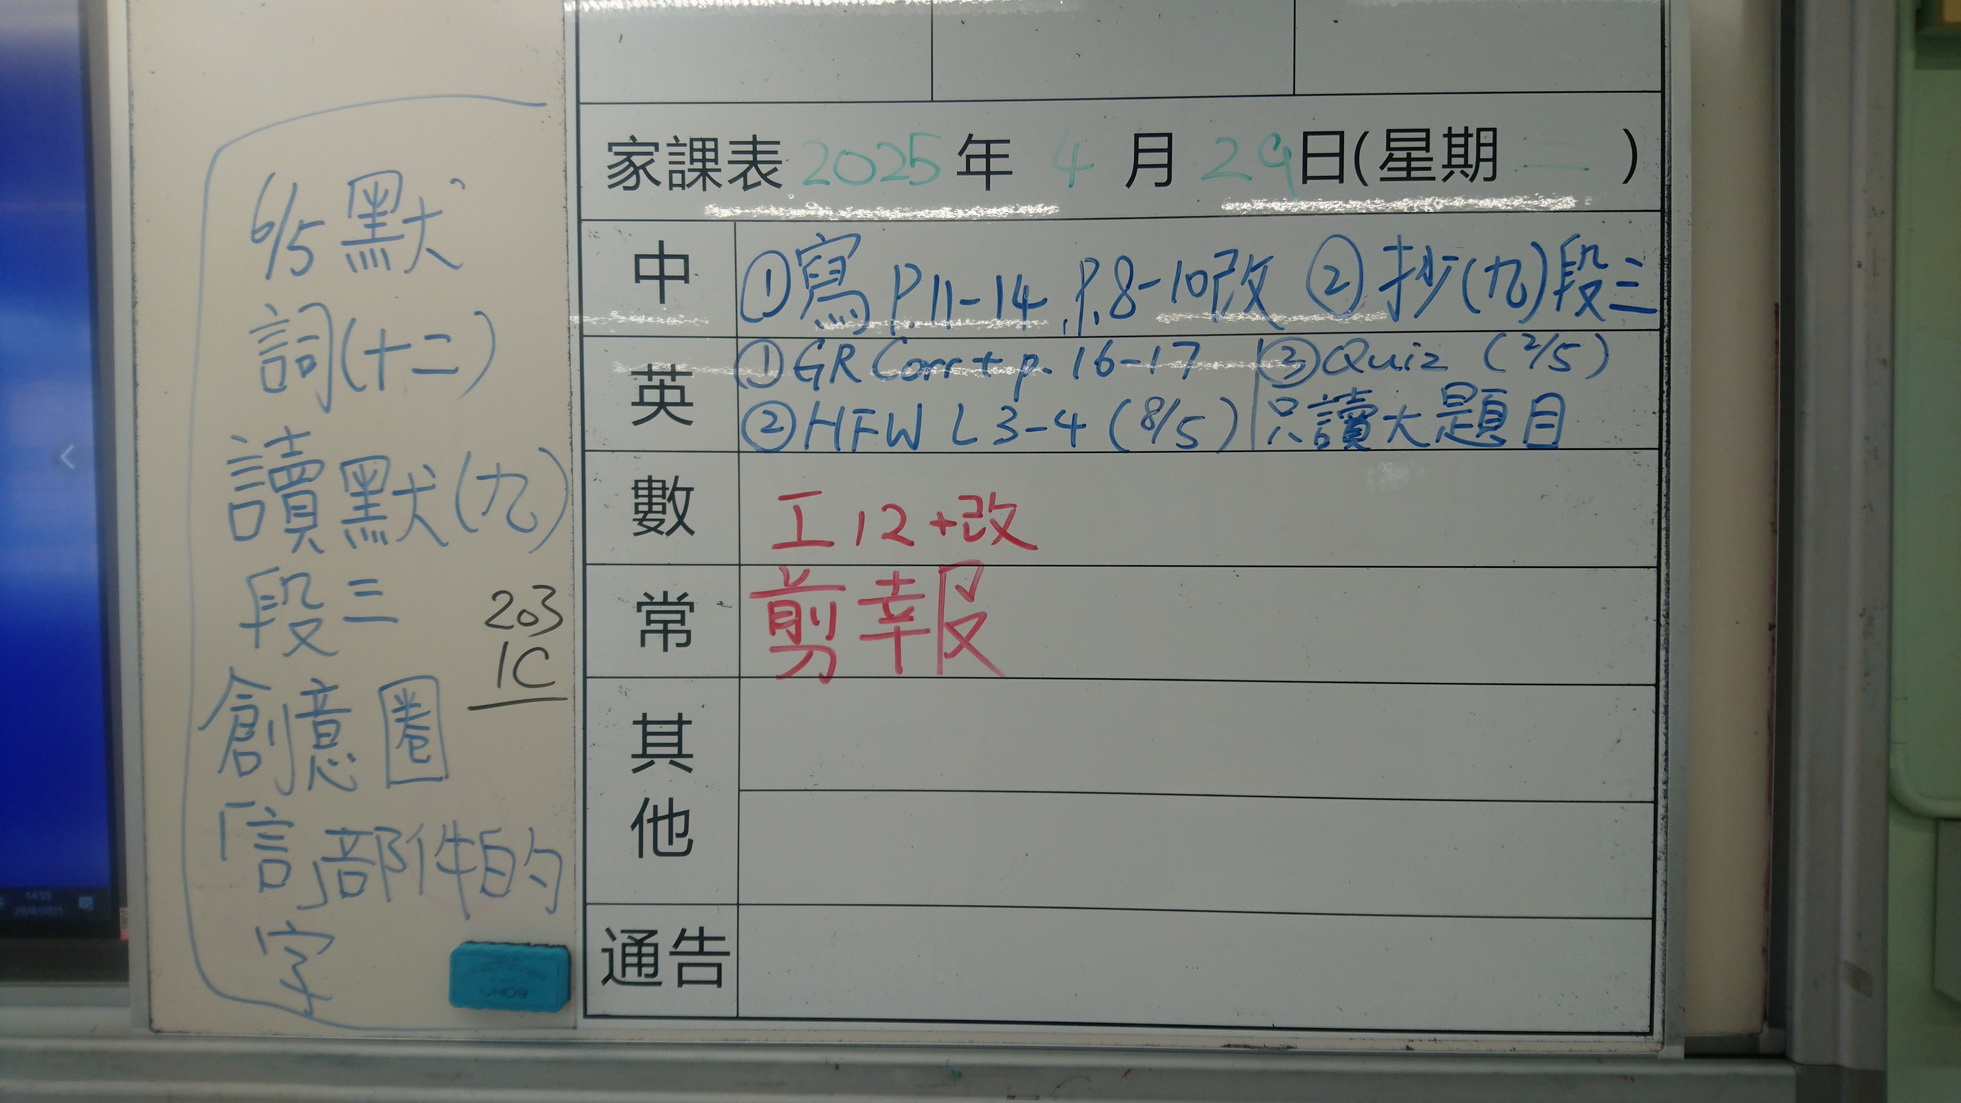 6/5默
詞(十二)
讀默(九)
段三
創意圈
「言」部件的
字
203
1C
家課表 2025 年 4 月 29 日(星期 二 )
中 ①寫 P.11-14, P.8-10改 ②抄(九)段三
英 ①GR Corr + p. 16-17 ③Quiz (2/5)
②HFW L3-4 (8/5) 只讀大題目
數 工12+改
常 剪報
其他
通告
14:55
29/4/2025